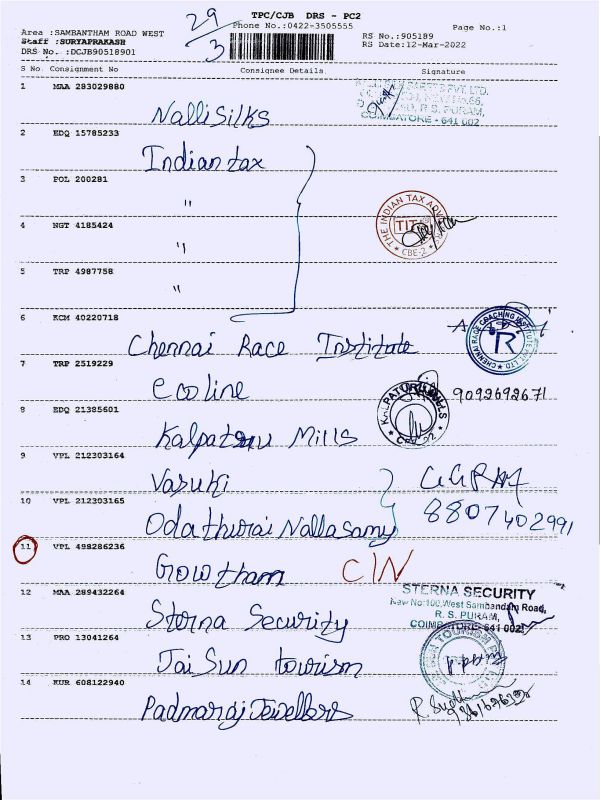 29/3
TPC/CJB DRS - PC2
Phone No.:0422-3505555
Page No.:1
Area :SAMBANTHAM ROAD WEST
Staff :SURYAPRAKASH
DRS No. :DCJB90518901
RS No.:905189
RS Date:12-Mar-2022
S No. Consignment No Consignee Details Signature
1 MAA 283029880
Nalli Silks
COIMBATORE - 641 002
2 EDQ 15785233
Indian tax
3 POL 200281
"
4 NGT 4185424
"
THE INDIAN TAX
TIT
CBE-2
5 TRP 4987758
"
6 KCM 40220718
Chennai Race Institute
CHENNAI RACE COACHING INSTITUTE PVT LTD
R
7 TRP 2519229
ecoline
9092692671
8 EDQ 21385601
Kalpatau Mills
9 VPL 212303164
Vasuki
10 VPL 212303165
Odathurai Nallasamy
8807402991
11 VPL 498286236
Gowtham CIN
12 MAA 289432264
Sterna Security
STERNA SECURITY
New No:100, West Sambandam Road,
R. S. PURAM,
COIMBATORE-641 002
13 PRO 13041264
Jai Sun tourism
14 KUR 608122940
Padmaraj Jewellers